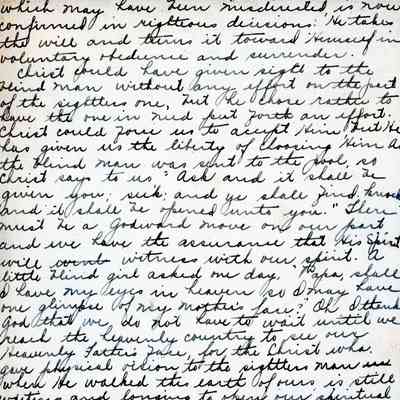 which may have been misdirected is now
confirmed in righteous decisions: He takes
the will and turns it toward Himself in
voluntary obedience and surrender.
Christ could have given sight to the
blind man without any effort on the part
of the sightless one, but He chose rather to
have the one in need put forth an effort.
Christ could force us to accept Him but He
has given us the liberty of choosing Him As
the blind man was sent to the pool, so
Christ says to us "Ask and it shall be
given you; seek; and ye shall find, knock
and it shall be opened unto you." There
must be a Godward move on our part,
and we have the assurance that His Spirit
will witness with our spirit. A
little blind girl asked one day, "Papa, shall
I have my eyes in heaven so I may have
one glimpse of my Mother's face." Oh I thank
God that we do not have to wait until we
reach the heavenly country to see our
Heavenly Father's face, for the Christ who
gave physical vision to the sightless man
when He walked this earth of ours is still
waiting and longing to open our spiritual